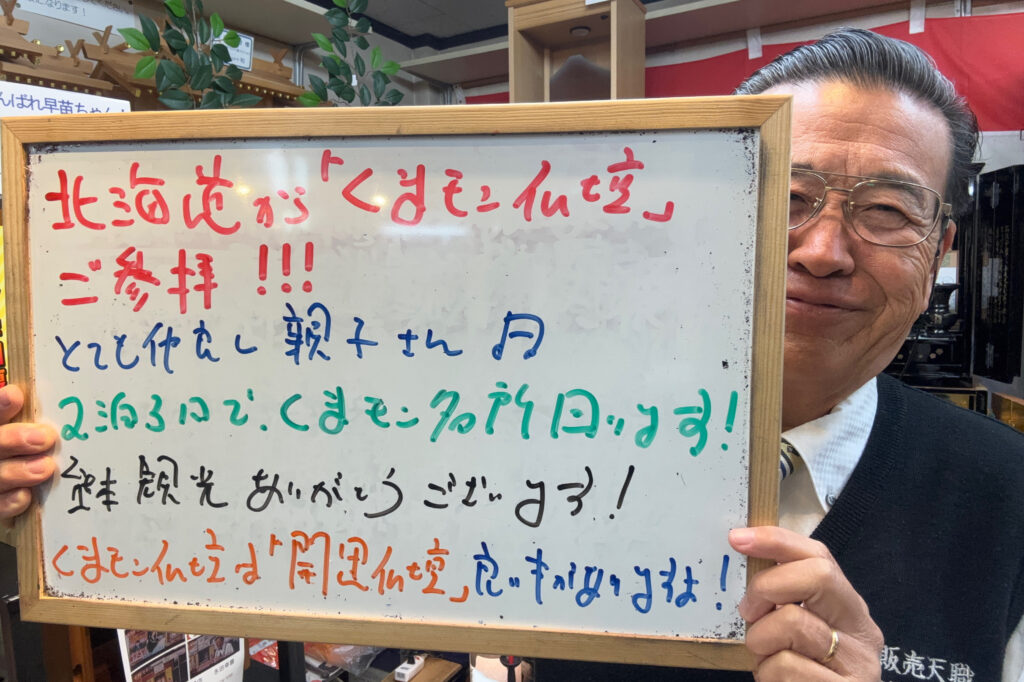 んばれ早苗ちゃん
北海道から「くまモン仏壇」
ご参拝!!!
とても仲良し親子さん
2泊3日で、くまモン名所回ります!
熊本観光ありがとうございます!
くまモン仏壇は「開思仏壇」良い事がありますよ!
販売天職